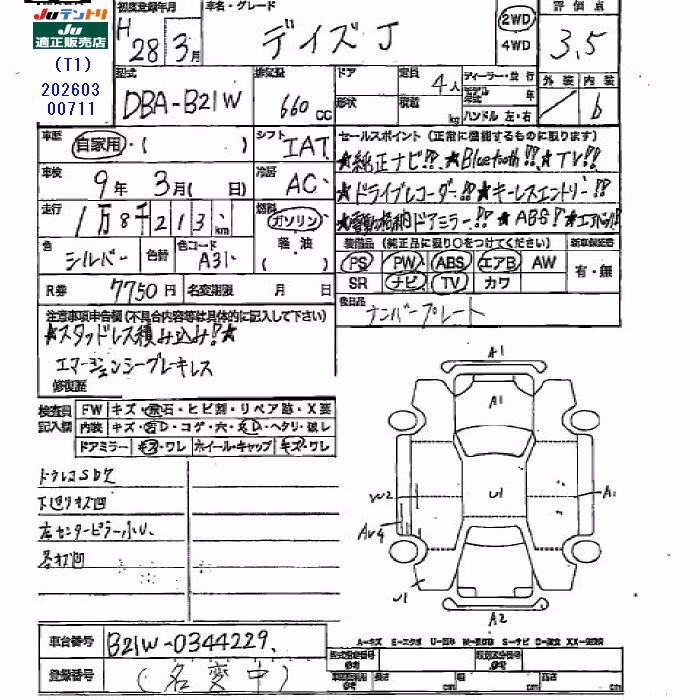 Juテントリ
Ju
適正販売店
(T1)
202603
00711
初度登録年月
H
28年3月
車名・グレード
デイズ J
2WD
4WD
評価点
3.5
型式
DBA-B21W
排気量
660 cc
ドア
形状
定員
4人
積載
kg
ディーラー・並行
モデル年式 年
ハンドル 左・右
外装
内装
b
車歴
自家用・( )
シフト
IAT
セールスポイント(正常に機能するものに限ります)
★純正ナビ!!、★Bluetooth!!、★TV!!
車検
9年 3月( 日)
冷房
AC
★ドライブレコーダー!!★キーレスエントリー!!
走行
1万8千213 km
燃料
ガソリン
軽・油
( )
★電動格納ドアミラー!!★ABS!★エアバッグ!!
色
シルバー
色替
色コード
A31
装備品(純正品に限り○をつけてください)
新車保証書
PS PW ABS エアB AW
有・無
SR ナビ TV カワ
R券
7750円
名変期限
月 日
後日品
ナンバープレート
注意事項申告欄(不具合内容等は具体的に記入して下さい)
★スタッドレス積み込み!★
エマージェンシーブレーキレス
修復歴
検査員
記入欄
FW キズ・飛石・ヒビ割・リペア跡・X要
内装 キズ・汚D・コゲ・穴・スD・ヘタリ・破レ
ドアミラー キズ・ワレ ホイール・キャップ キズ・ワレ
ドラレコSD欠
下廻りキズ凹
左センターピラー小U、
各打凹
A1
A1
W2
U1
A1
AW4
U1
A2
車台番号
B21W-0344229
登録番号
(名変中)
A=キズ E=エクボ U=凹み W=補修跡 S=サビ C=腐食 XX=交換済
型式指定番号
類別区分番号
長さ cm
幅 cm
高さ cm